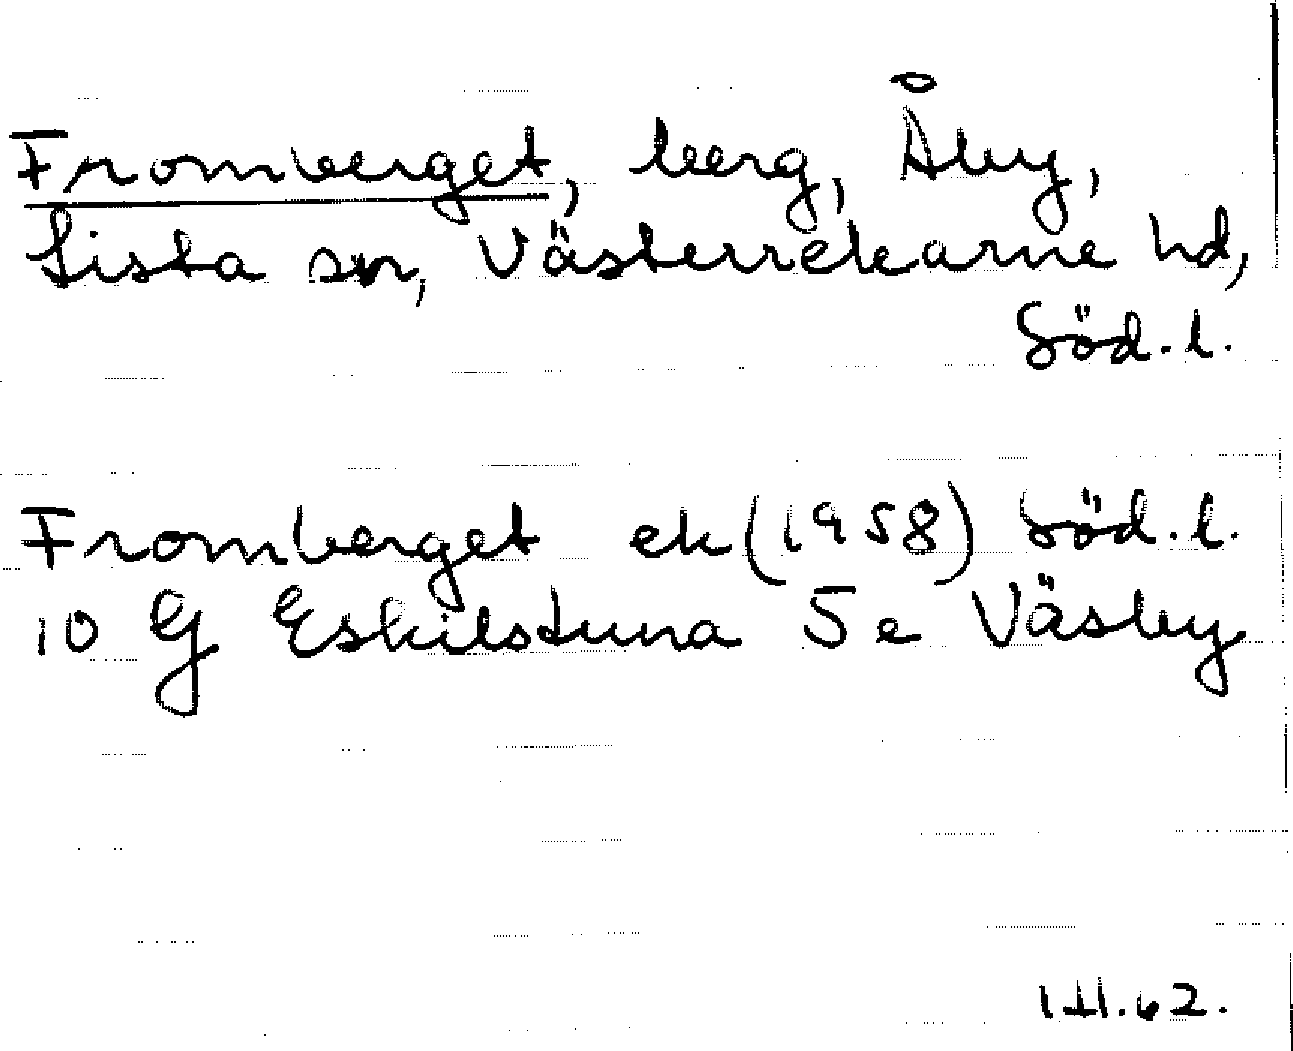 Fromberget, berg, Åby,
Lista sn, Västerrekarne hd,
Söd.l.
Fromberget ek (1958) Söd.l.
10 G Eskilstuna 5e Väsby